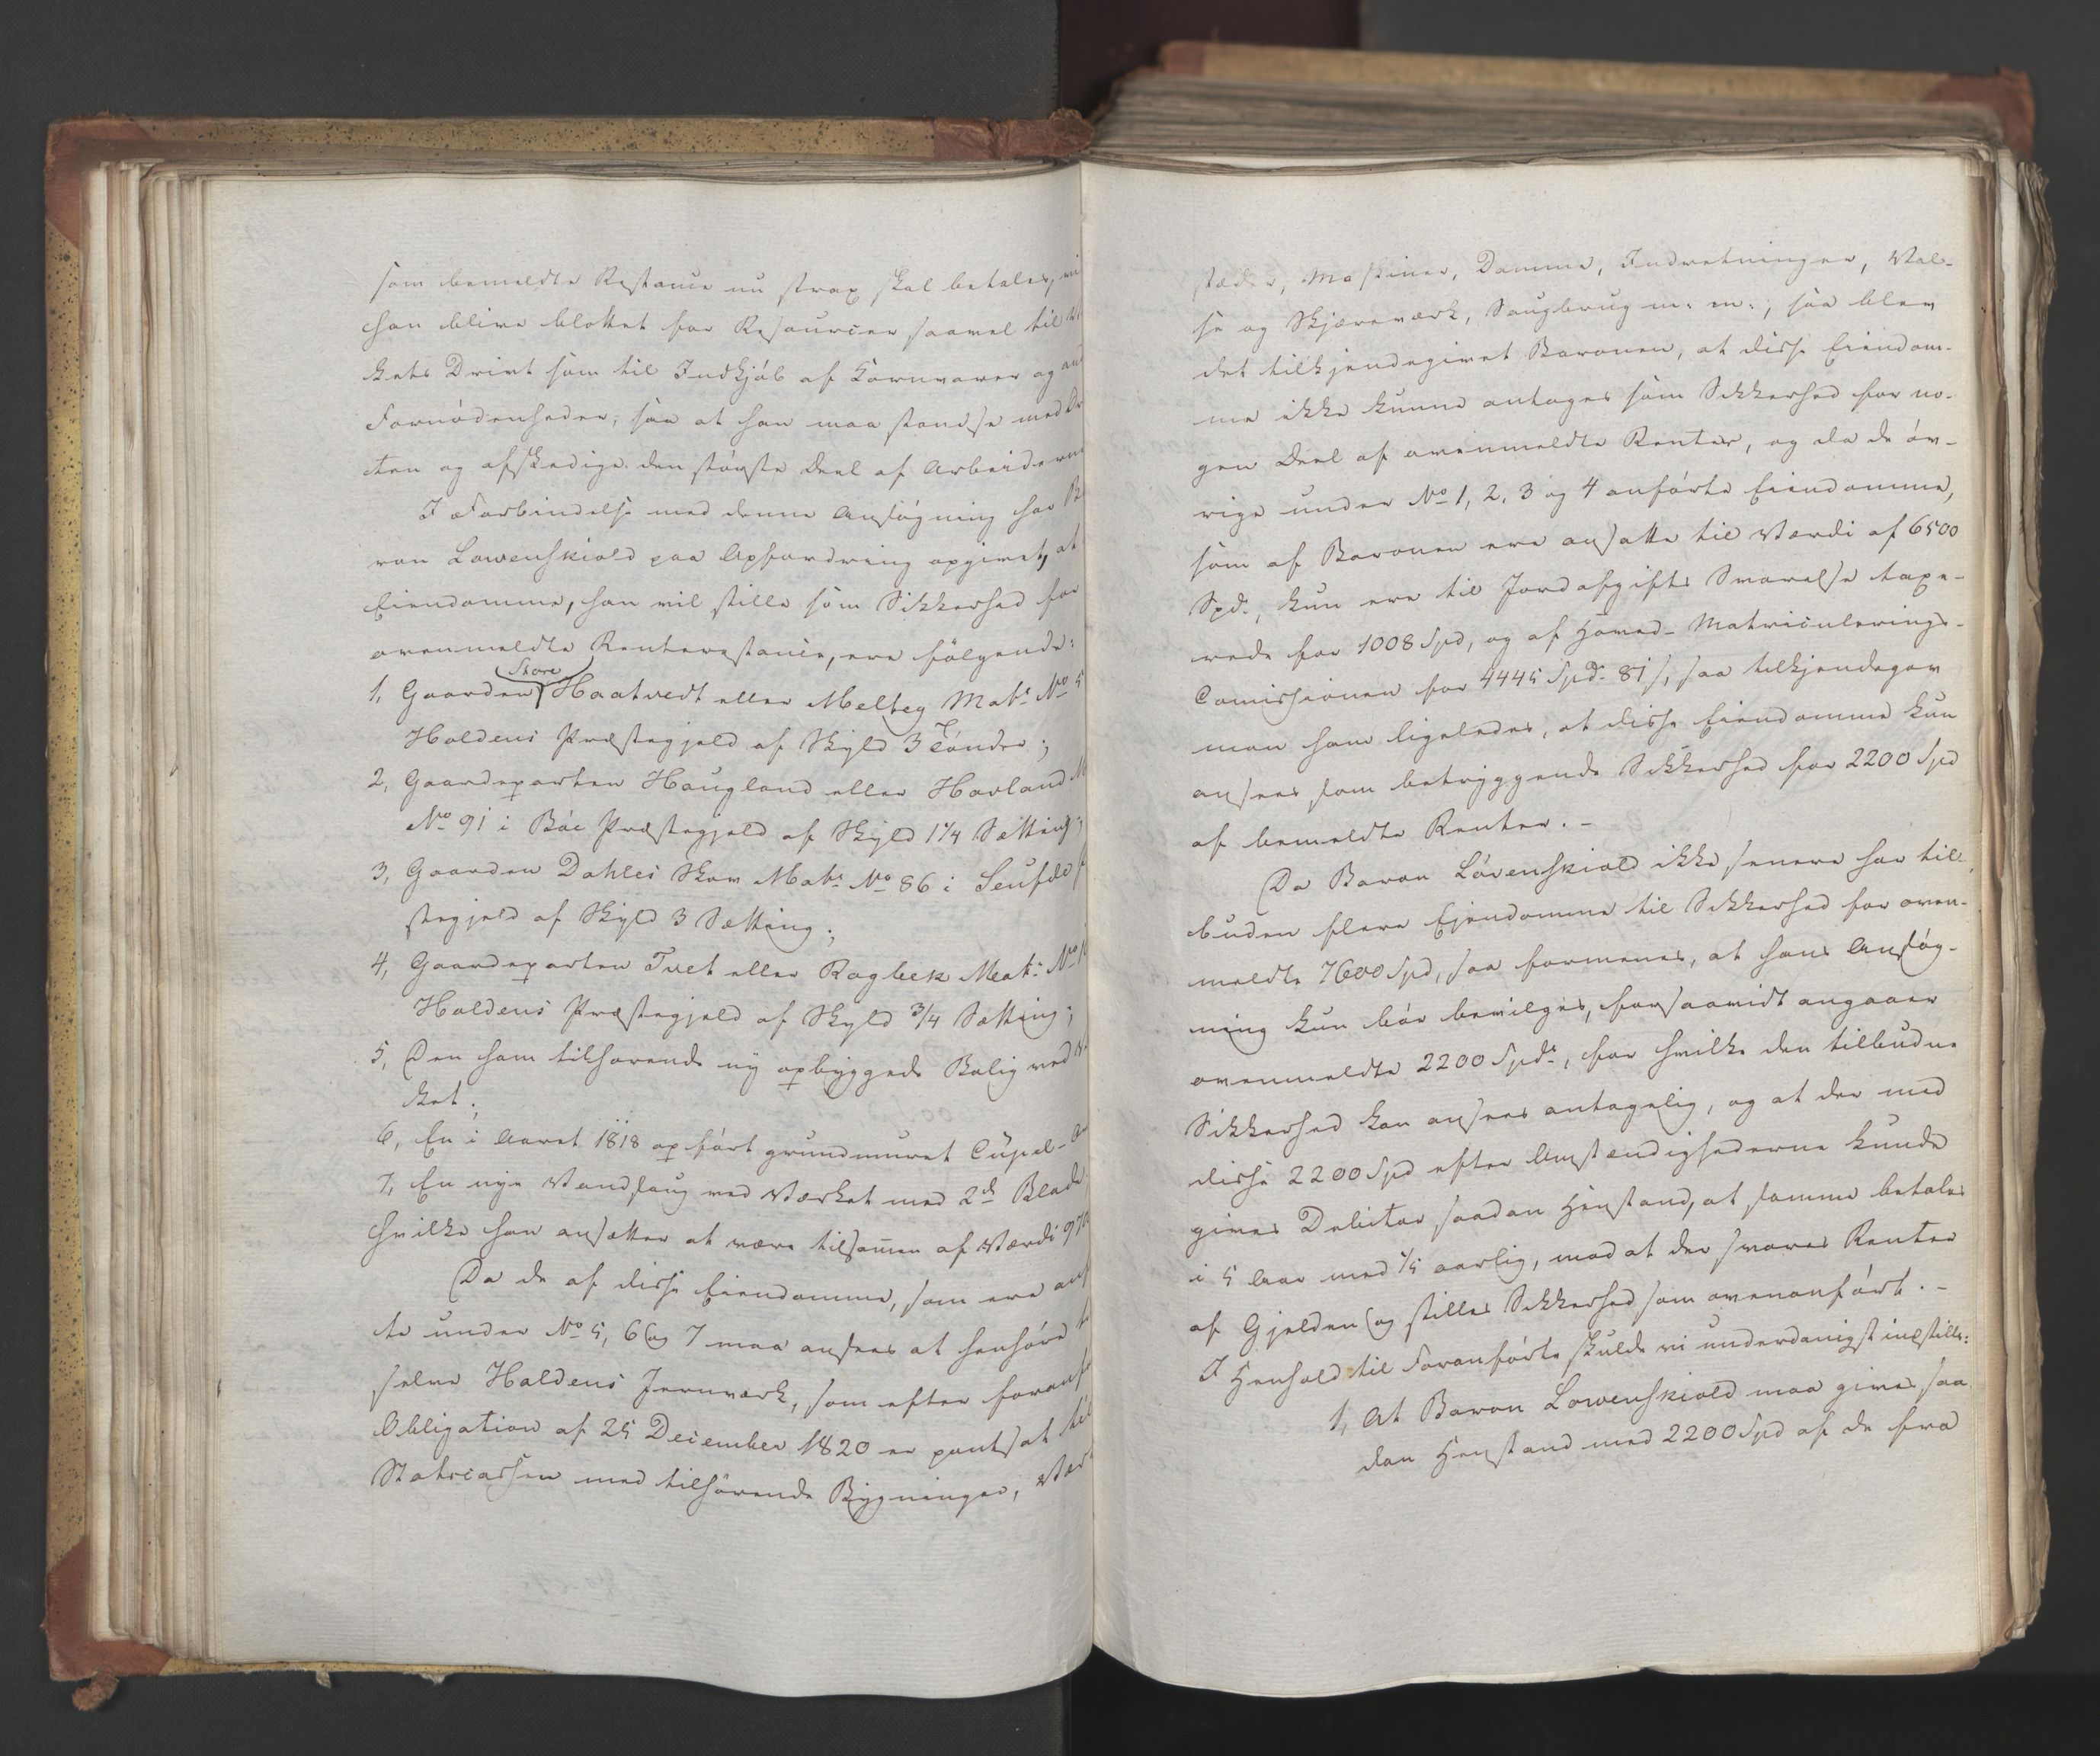 som bemeldte Restance nu strax skal betales, vil
han blive blottet for Resourcer saavel til
kets Drivt som til Indkjøb af Kornvarer og
Fornødenheder, saa at han maa standse med
ten og afskedige den største Deel af Arbeiderne
I Forbindelse med denne Ansøgning har Ba
ron Løwenskiold paa Opfordring opgivet, at
Eiendomme, han vil stille som Sikkerhed for
ovenmeldte Renterestance, ere følgende:
1, Gaarden Store Haatvedt eller Melteg Matr: No 5
Holdens Præstegjeld af Skyld 3 Tønder;
2, Gaardeparten Haugland eller Havland
No 91 i Bøe Præstegjeld af Skyld 1 1/4 Sætting;
3, Gaarden Dahles Skov Matr No 86 i Seufde
stegjeld af Skyld 3 Sætting;
4, Gaardeparten Tvet eller Ragbek Matr: No
Holdens Præstegjeld af Skyld 3/4 Sætting;
5, Den ham tilhørende ny opbyggede Bolig ved
ket;
6, En i Aaret 1818 opført grundmuret Cupol-
7, En nye Vandsaug ved Værket med 2de Blade
hvilke han ansætter at være tilsamen af Værdi
Da de af disse Eiendomme, som ere anf
te under No 5, 6 og 7 maa ansees at henhøre
selve Holdens Jernværk, som efter foranf
Obligation af 25 December 1820 er pantsat til
Statscassen med tilhørende Bygninger,
stæder, Maskiner, Damme, Indretninger, Val-
se og Skjæreværk, Saugbrug m: m:, saa blev
det tilkjendegivet Baronen, at disse Eiendom-
me ikke kunne antages som Sikkerhed for no-
gen Deel af ovenmeldte Renter, og da de øv-
rige under No 1, 2, 3 og 4 anførte Eiendomme,
som af Baronen ere ansatte til Værdi af 6500
Spd., kun ere til Jordafgifts Svarelse taxe-
rede for 1008 Spd, og af Hoved-Matriculerings-
Comissionen for 4445 Spd. 81 s, saa tilkjendegav
man ham ligeledes, at disse Eiendomme kun
ansees som betryggende Sikkerhed for 2200 Spd
af bemeldte Renter. -
Da Baron Løvenskiold ikke senere har till
buden flere Ejendomme til Sikkerhed for oven-
meldte 7600 Spd, saa formenes, at hans Ansøg-
ning kun bør bevilges, forsaavidt angaaer
ovenmeldte 2200 Spdr, for hvilke den tilbudne
Sikkerhed kan ansees antagelig, og at der med
disse 2200 Spd efter Omstændighederne kunde
gives Debitor saadan Henstand, at samme betales
i 5 Aar med 1/5 aarlig, mod at der svares Renter
af Gjelden og stilles Sikkerhed som ovenanført. -
I Henhold til Foranførte skulde vi underdanigst indstille:
1, At Baron Løwenskiold maa gives saa
dan Henstand med 2200 Spd af de fra